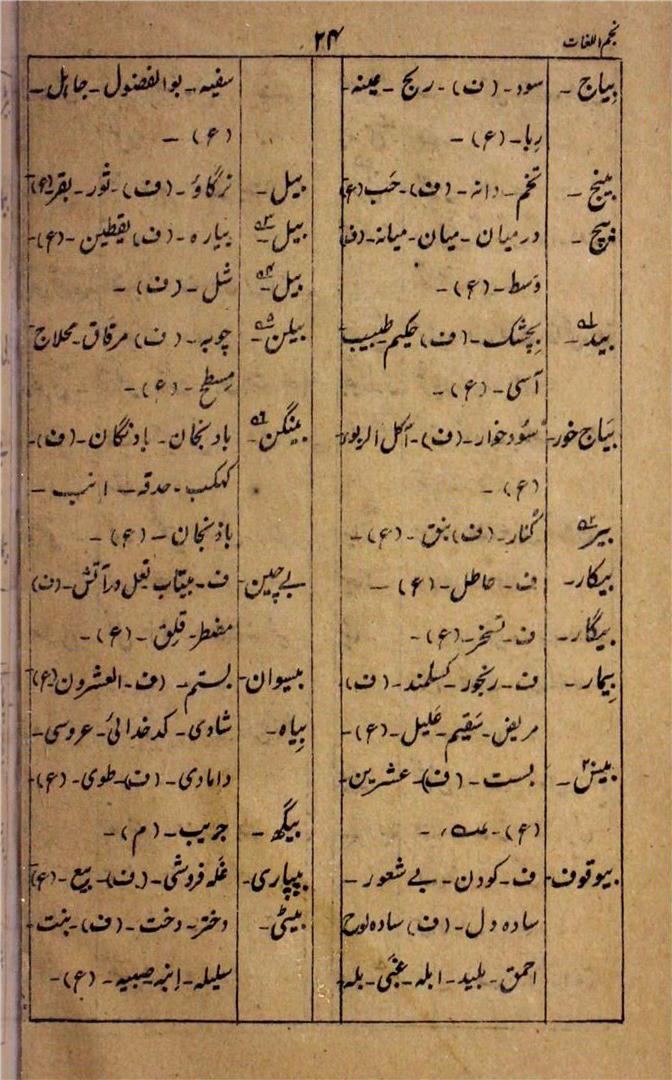 نجم اللغات
۲۴
بیاج - سود - (ف) - ربح - عینہ -
ربا - (ع) -
بینج - تخم - دانہ - (ف) - حَب (ع)
بیچ - درمیان - میان - میانہ - (ف)
وَسط - (ع) -
بید - بِچشک - (ف) حکیم طبیب
آسی - (ع) -
بیاج خور - سُود خوار - (ف) - آکل الربوا
(ع) -
بیر - کُنار - (ف) نبق - (ع) -
بیکار - ف - عاطل - (ع) -
بیگار - ف - تسخر - (ع) -
بیمار - ف - رنجور - کسلمند - (ف)
مریض - سَقیم - عَلیل - (ع) -
بیس - بست - (ف) - عشرین -
(ع) -
بیوقوف - ف - کودن - بے شعور -
سادہ دل - (ف) سادہ لوح
احمق - بلید - ابلہ - غبَی - بلہ -
سفیہ - بوالفضول - جاہل -
(ع) -
بیل - نر گاؤ - (ف) - ثور - بقر (ع)
بیل - بیارہ - (ف) یقطین - (ع) -
بیل - شل - (ف) -
بیلن - چوبہ - (ف) مرقاق - محلاج
مِسطح - (ع) -
بینگن - بادنجان - بادنگان - (ف) -
کہکب - حدقہ - انب -
باذنجان - (ع) -
بے چین - ف - بیتاب نعل در آتش - (ف)
مضطر - قلِق - (ع) -
بیسوان - بستم - (ف - العشرون (ع)
بیاہ - شادی - کدخدائی - عروسی -
دامادی - (ف) - طوی - (ع) -
بیگھ - جریب - (م) -
بیپاری - غلہ فروشی - (ف) - بیع - (ع)
بیٹی - دختر - دخت - (ف) - بنت -
سلیلہ - اِبنہ صبیہ - (ع) -